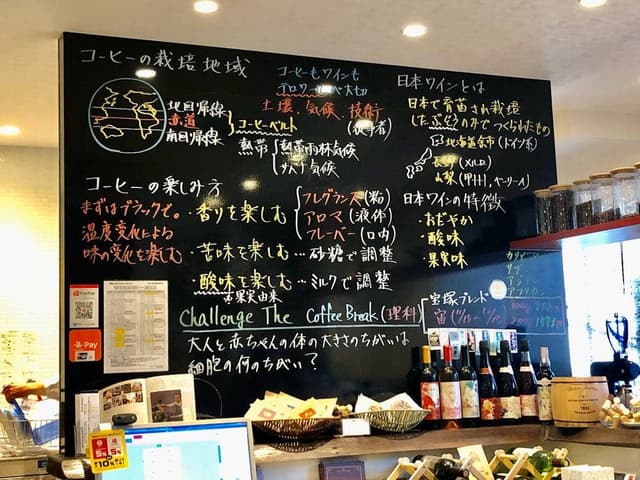 コーヒーの栽培地域
北回帰線
赤道
南回帰線
コーヒーベルト
コーヒーもワインも
テロワールが大切
土壌、気候、技術
熱帯
熱帯雨林気候
サバナ気候
コーヒーの楽しみ方
まずはブラックで。
温度変化による
味の変化を楽しむ
・香りを楽しむ
フレグランス(粉)
アロマ(液体)
フレーバー(口内)
・苦味を楽しむ…砂糖で調整
・酸味を楽しむ…ミルクで調整
果実由来
Challenge The Coffee Break(理科)
大人と赤ちゃんの体の大きさのちがいは
細胞の何のちがい?
日本ワインとは
日本で育苗され栽培
したぶどうのみでつくられたもの
北海道余市(ドイツ系)
長野(メルロ)
山梨(甲州、ベーリーA)
日本ワインの特徴
・おだやか
・酸味
・果実味
宝塚ブレンド
PayPay
Pay